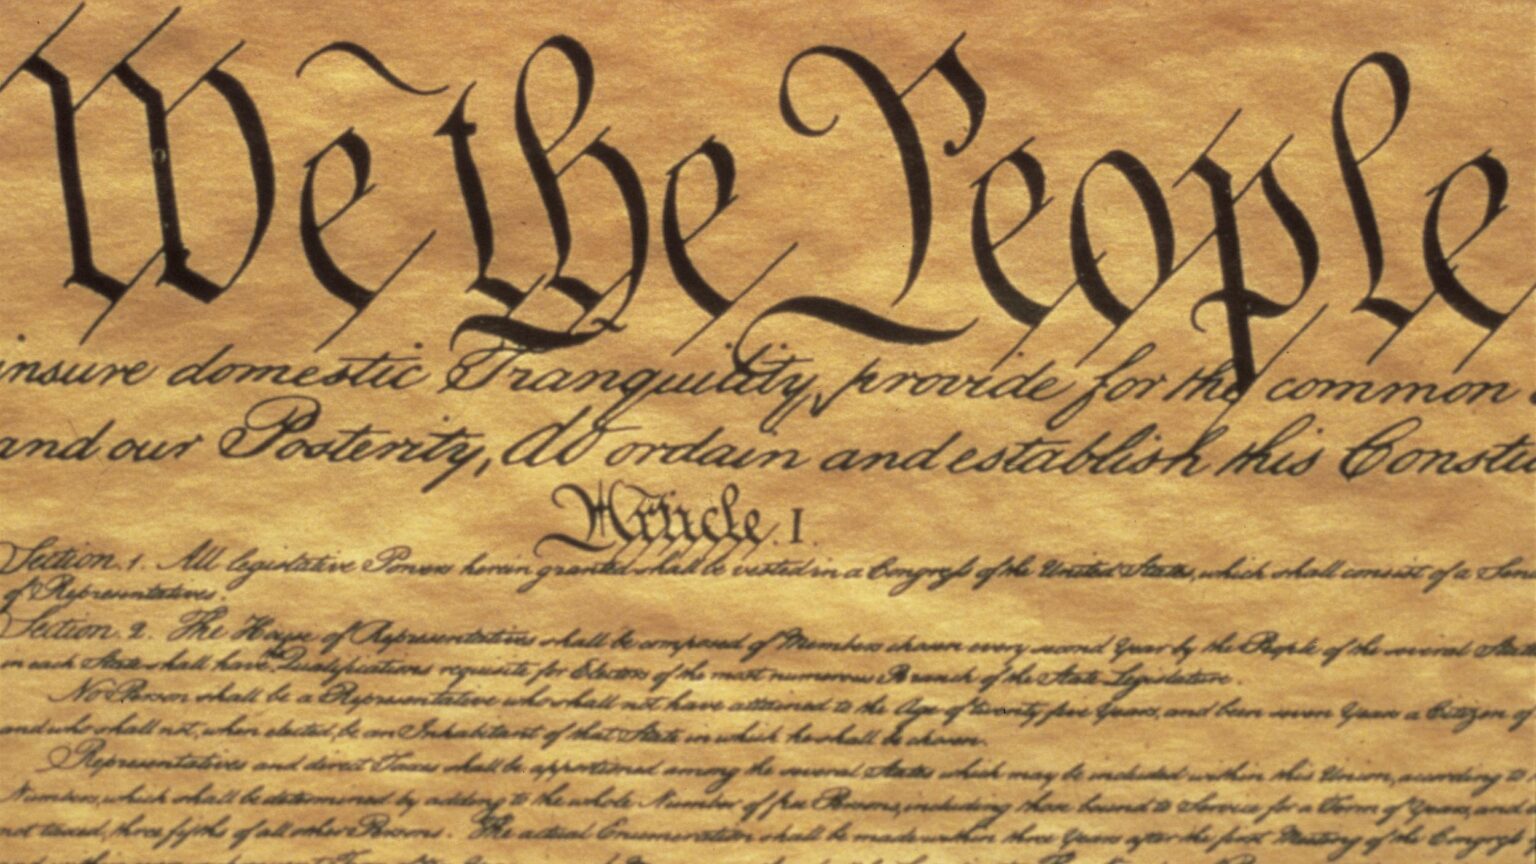 We the People
insure domestic Tranquility, provide for the common
and our Posterity, do ordain and establish this Constitu
Article. I.
Section. 1. All legislative Powers herein granted shall be vested in a Congress of the United States, which shall consist of a Sen
of Representatives.
Section. 2. The House of Representatives shall be composed of Members chosen every second Year by the People of the several States
in each State shall have the Qualifications requisite for Electors of the most numerous Branch of the State Legislature.
No Person shall be a Representative who shall not have attained to the Age of twenty five Years, and been seven Years a Citizen of
and who shall not, when elected, be an Inhabitant of that State in which he shall be chosen.
Representatives and direct Taxes shall be apportioned among the several States which may be included within this Union, according to
Numbers, which shall be determined by adding to the whole Number of free Persons, including those bound to Service for a Term of Years, and
not taxed, three fifths of all other Persons. The actual Enumeration shall be made within three Years after the first Meeting of the Congress